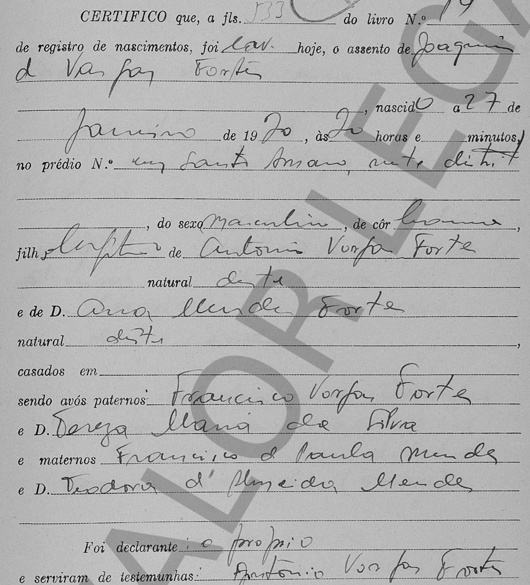 CERTIFICO que, a fls. 133 do livro N.º 19
de registro de nascimentos, foi lav. hoje, o assento de Joaquim
d Vargas Fortes
, nascido a 27 de
Janeiro de 1920, às 20 horas e minutos,
no prédio N.º em Santo neste distrit
, do sexo masculino, de côr branca,
filho legitimo de Antonio Vargas Fortes
natural deste
e de D. Ana Mendes Fortes
natural deste,
casados em
sendo avós paternos: Francisco Vargas Fortes
e D. Tereza Maria da Silva
e maternos Francisco d Paula Mendes
e D. Teodora d'Almeida Mendes
Foi declarante: o proprio
e serviram de testemunhas: Antônio Vargas Fortes
VALOR LEGA